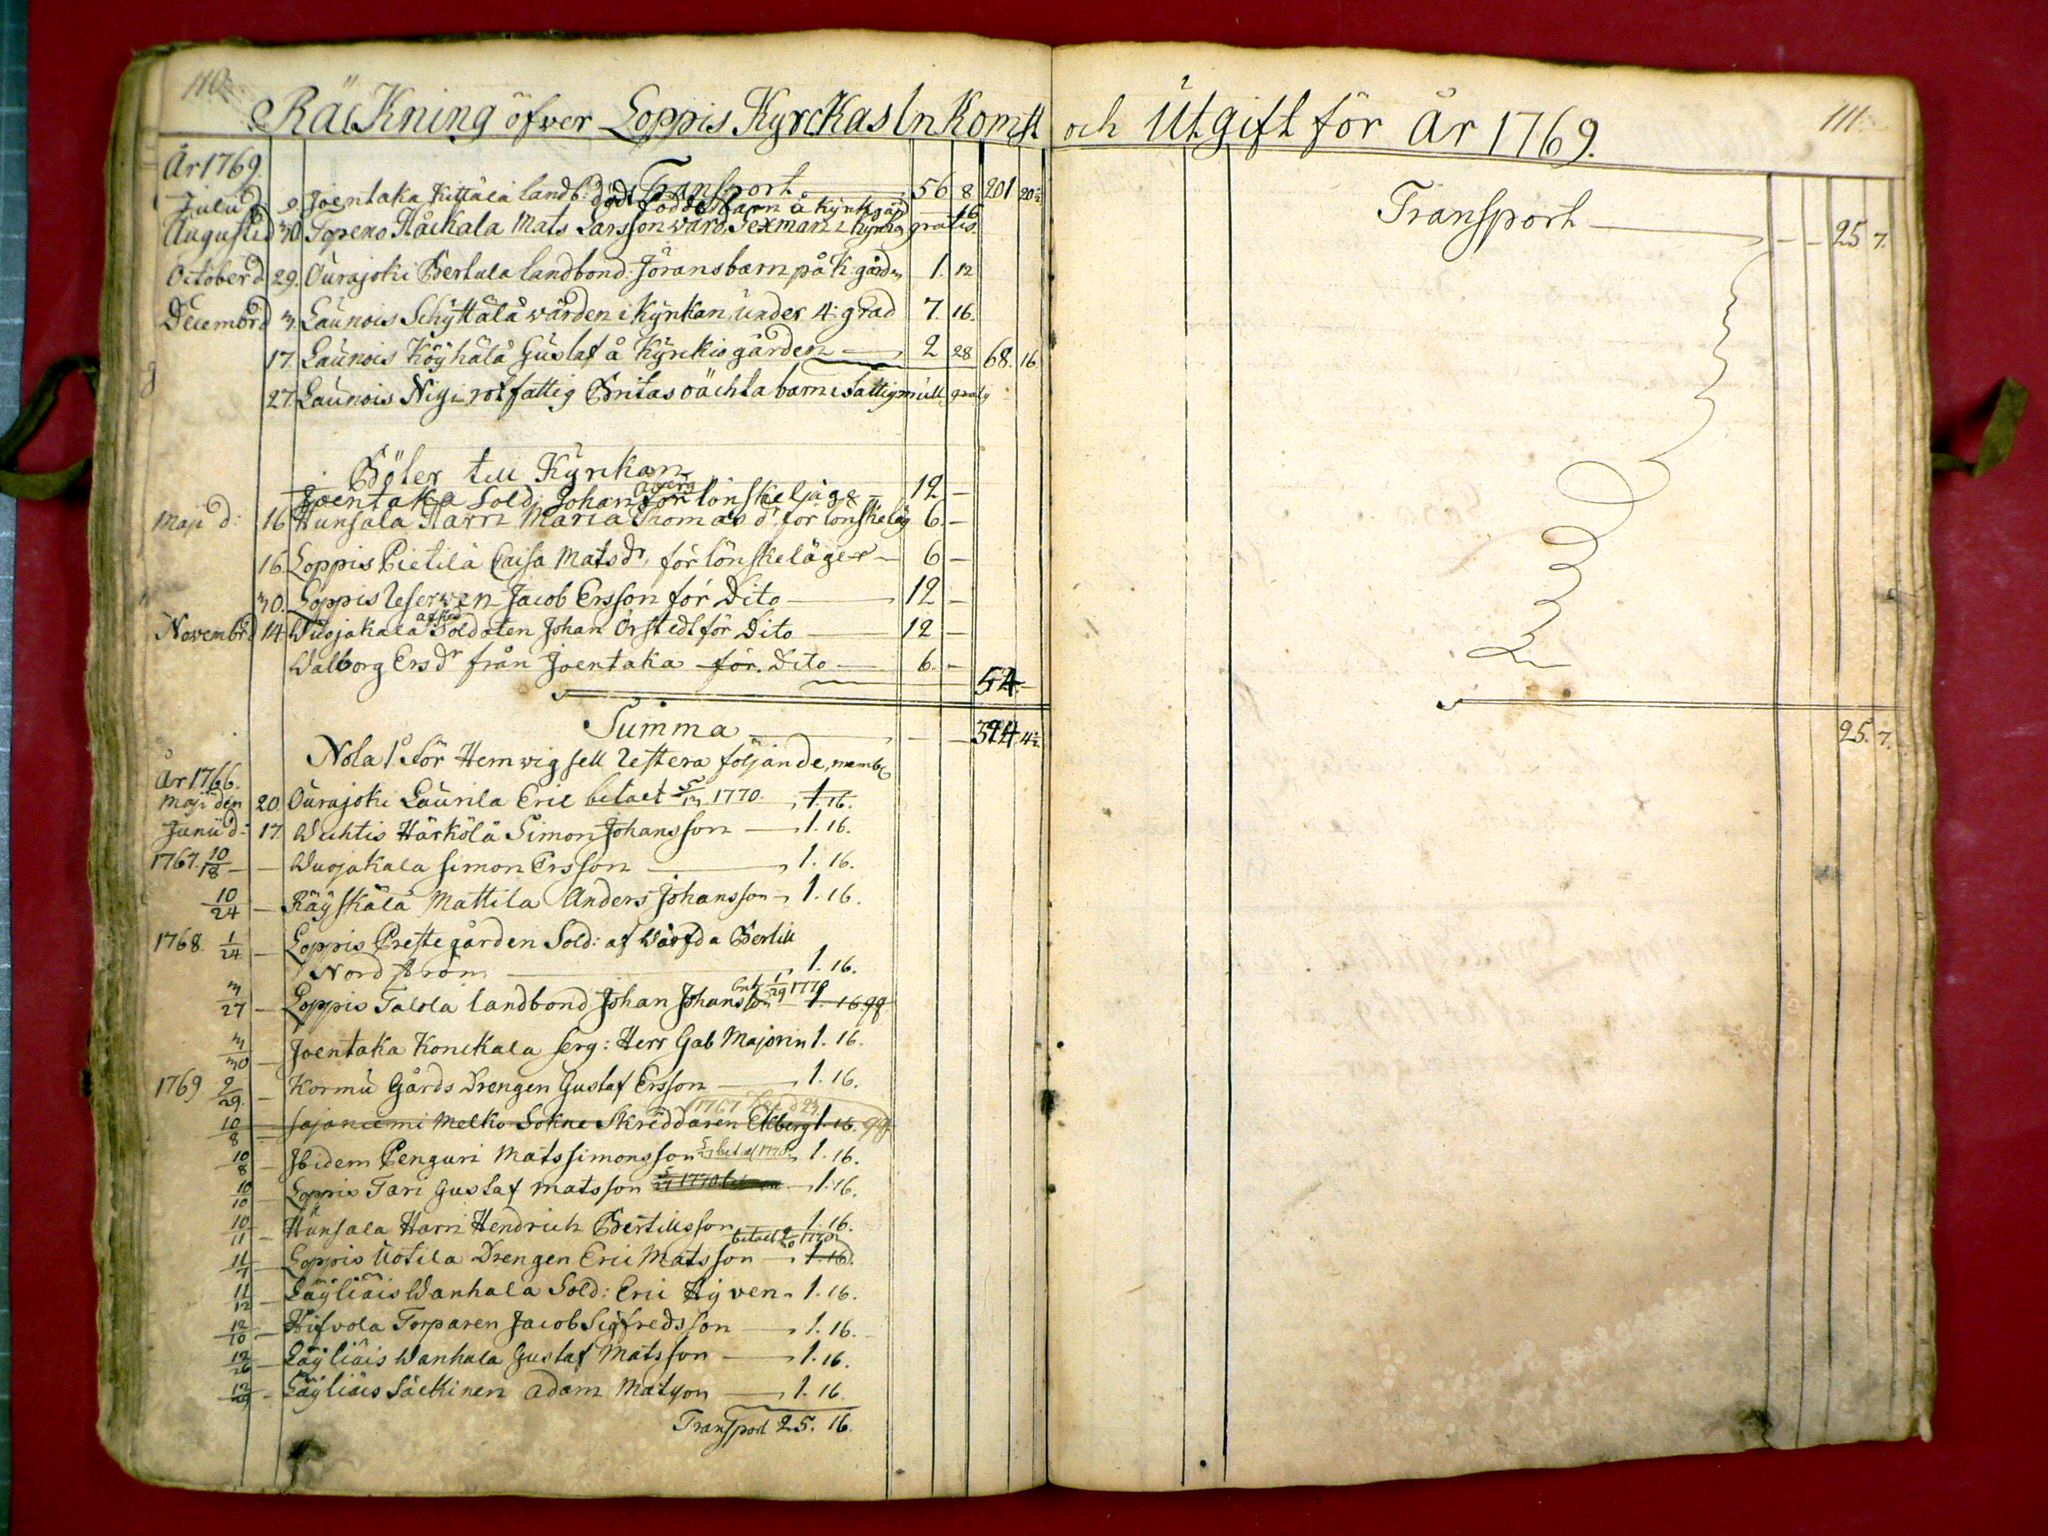 110.
Räckning öfwer Loppis Kyrckas Inkomst och Utgift för År 1769.
111.
År 1769.
Transport 56 8 201 20½
Julii d 9 Joentaka Kittälä landb: dödfödde barn å Kyrkogård 16
August d 30. Topeno Håckala Mats Larsson war Sexman i Kyrkan gratis
October d 29. Ourajoki Bertula landbond: Jöransbarn på K:gården 1. 12
Decembr d 3. Launois Schyttälä wården i Kyrkan under 4: grad 7. 16.
17. Launois Köyhälä Gustaf å Kyrckiogården 2 28 68. 16
27. Launois rot fattig Britas oächta barn i gratis
Böter till Kyrckan
Joentaka Sold: Johan för lönskeläge 12 –
Maji d: 16 Hunsala Harri Maria Thomas dr för lönskeläg 6. –
16. Loppis Pietilä Caisa Mats dr, för lönskeläger 6 –
30. Loppis Reserwen Jacob Ersson för Dito 12 –
Novembr d 14 Wuojakala afsked Soldaten Johan Örstedt för Dito 12 –
Walborg Ers dr från Joentaka för Dito 6. –
54. –
Summa – – 324. 4½
Nota 1o För Hemwigsell restera följande, nembl
År 1766.
Maji den 20. Ourajoki Laurila Eric betalt 1770. 1. 16.
Junii d: 17. Wuhtis Härkölä Simon Johansson 1. 16.
1767. 10/18 – Wuojakala Simon Ersson 1. 16.
10/24 – Räyskälä Mattila Anders Johansson 1. 16.
1768. 1/24 – Loppis Prestegården Sold: afwärfda Bertill
Nordström 1. 16.
3/27 – Loppis Talola landbond Johan Johansson 1/29 1770 1. 16.
3/30 – Joentaka Konckala serg: Herr Gab Majorin 1. 16.
1769 9/29. – Kormu Gårds Drengen Gustaf Ersson 1. 16.
1767
10/8 – Sajaniemi Melko Sokne Skräddaren Ekberg 1. 16.
10/8 – Ibidem Penguri Mats Simonsson betalt 1770 1. 16.
10/10 – Loppis Tari Gustaf Matsson 1770 1. 16.
10/11 – Hunsala Harri Hendrich Bertillsson 1. 16.
11/1 – Loppis Uotila Drengen Eric Matsson betalt 1770 1. 16.
11/12 – Läyliäis Wanhala Sold: Eric Hyven 1. 16.
12/10 – Hifvola Torparen Jacob Sigfredsson 1. 16.
12/26 – Läyliäis Wanhala Gustaf Matsson 1. 16.
Läyliäis Säckinen Adam Matsson 1. 16.
Transport 25. 16.
Transport – – 25 7.
25. 7.